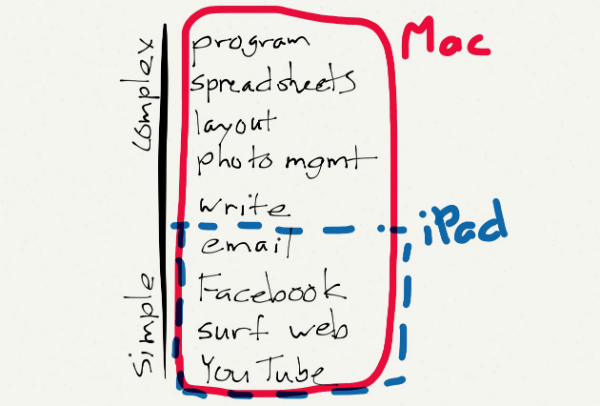 complex
simple
program
spreadsheets
layout
photo mgmt
write
email
Facebook
surf web
YouTube
Mac
iPad